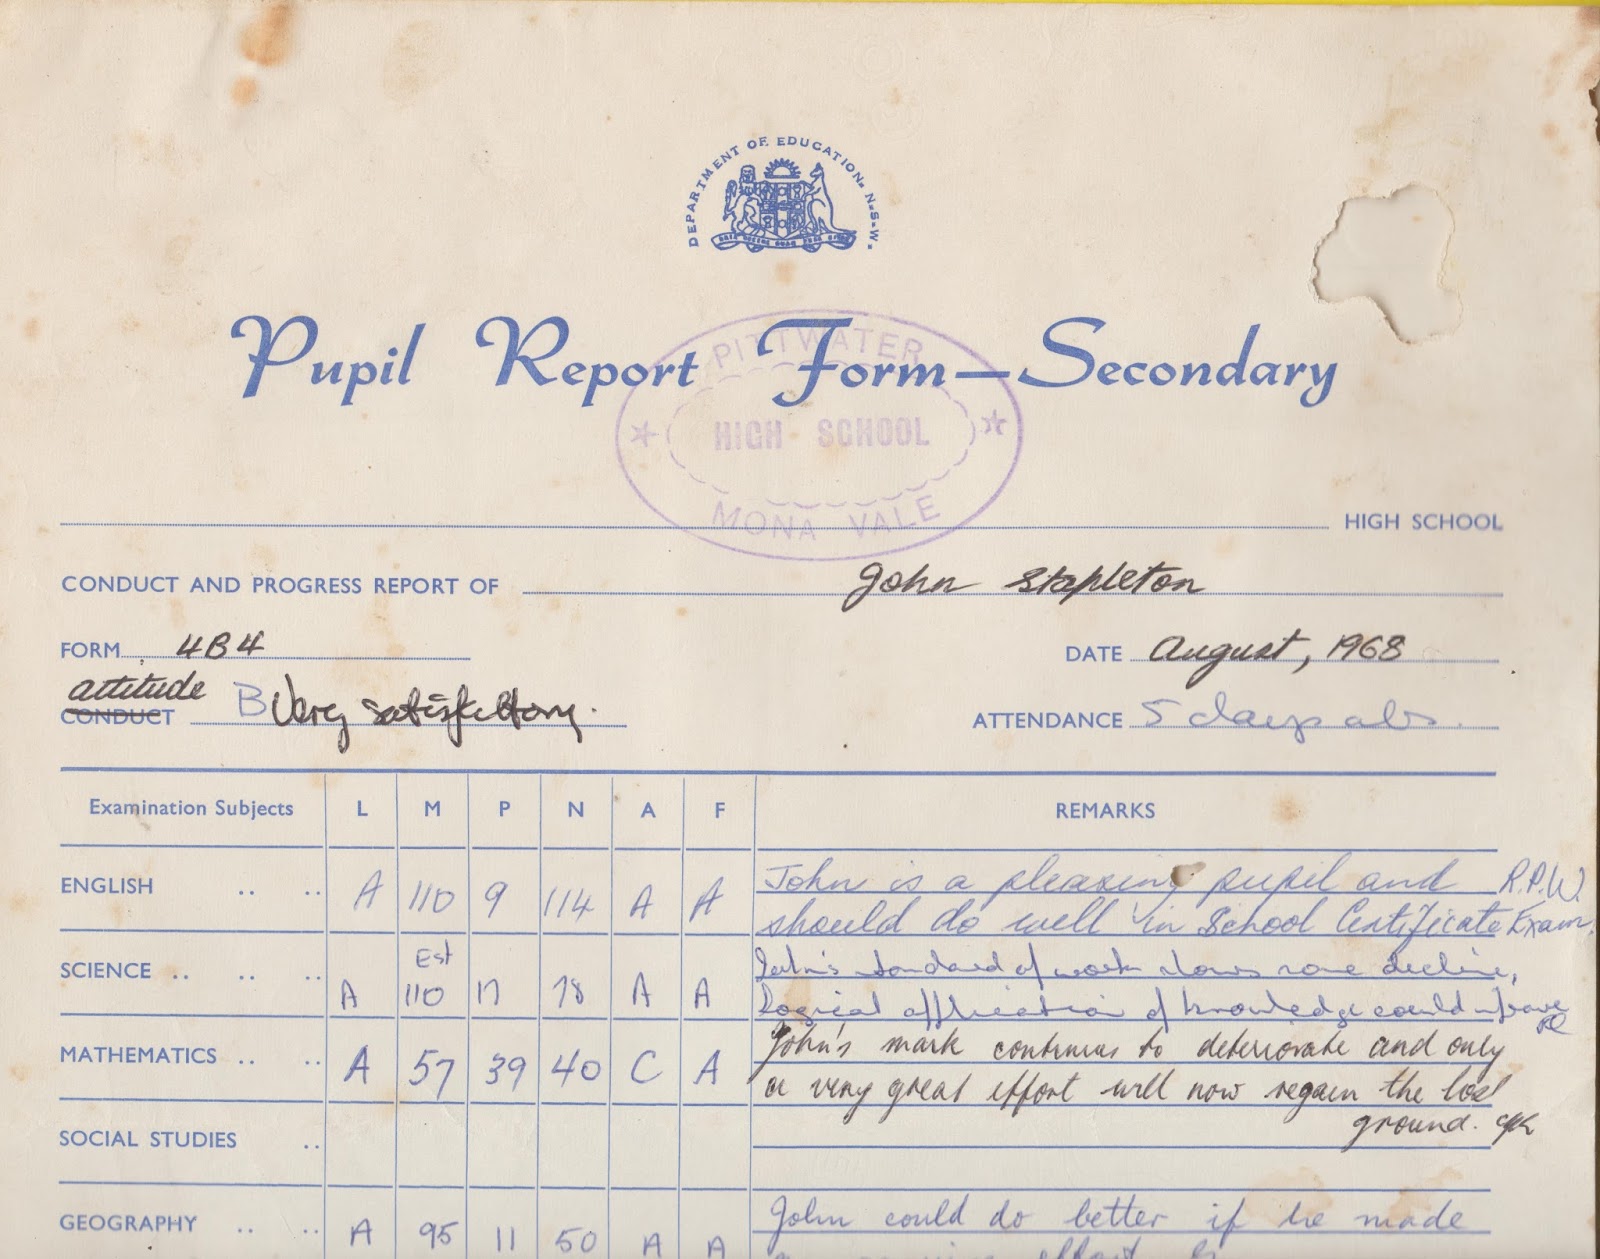 DEPARTMENT OF EDUCATION. N.S.W.
Pupil Report Form—Secondary
PITTWATER
HIGH SCHOOL
MONA VALE
HIGH SCHOOL
CONDUCT AND PROGRESS REPORT OF John Stapleton
FORM 4B4 DATE August, 1968
attitude
CONDUCT B Very satisfactory. ATTENDANCE 5 days abs.
Examination Subjects L M P N A F REMARKS
ENGLISH .. .. A 110 9 114 A A John is a pleasing pupil and R.P.W.
should do well in School Certificate Exam.
Est
SCIENCE .. .. .. A 110 17 78 A A John's standard of work shows some decline,
Logical application of knowledge could
MATHEMATICS .. .. A 57 39 40 C A John's mark continues to deteriorate and only
a very great effort will now regain the lost
ground.
SOCIAL STUDIES ..
GEOGRAPHY .. .. A 95 11 50 A A John could do better if he made
effort